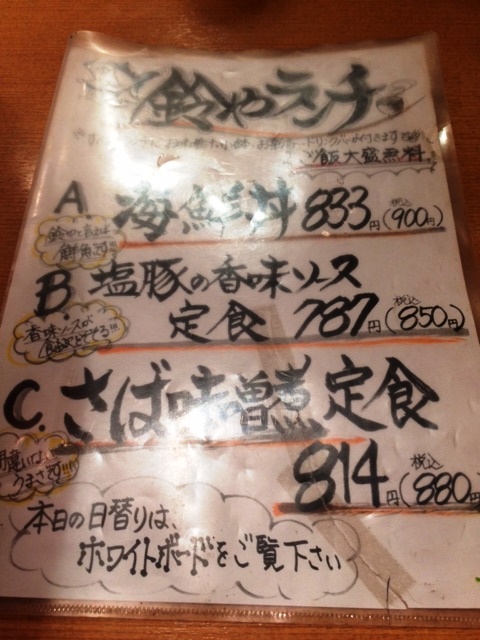 鈴やランチ
ご飯大盛無料
A. 海鮮丼 833円 税込(900円)
鈴やと言えば
鮮魚町!!
B. 塩豚の香味ソース
定食 787円 税込(850円)
香味ソースが
食欲そそる!!!
C. さば味噌煮定食
814円 税込(880円)
間違いない
うまさです!!!
本日の日替りは、
ホワイトボードをご覧下さい